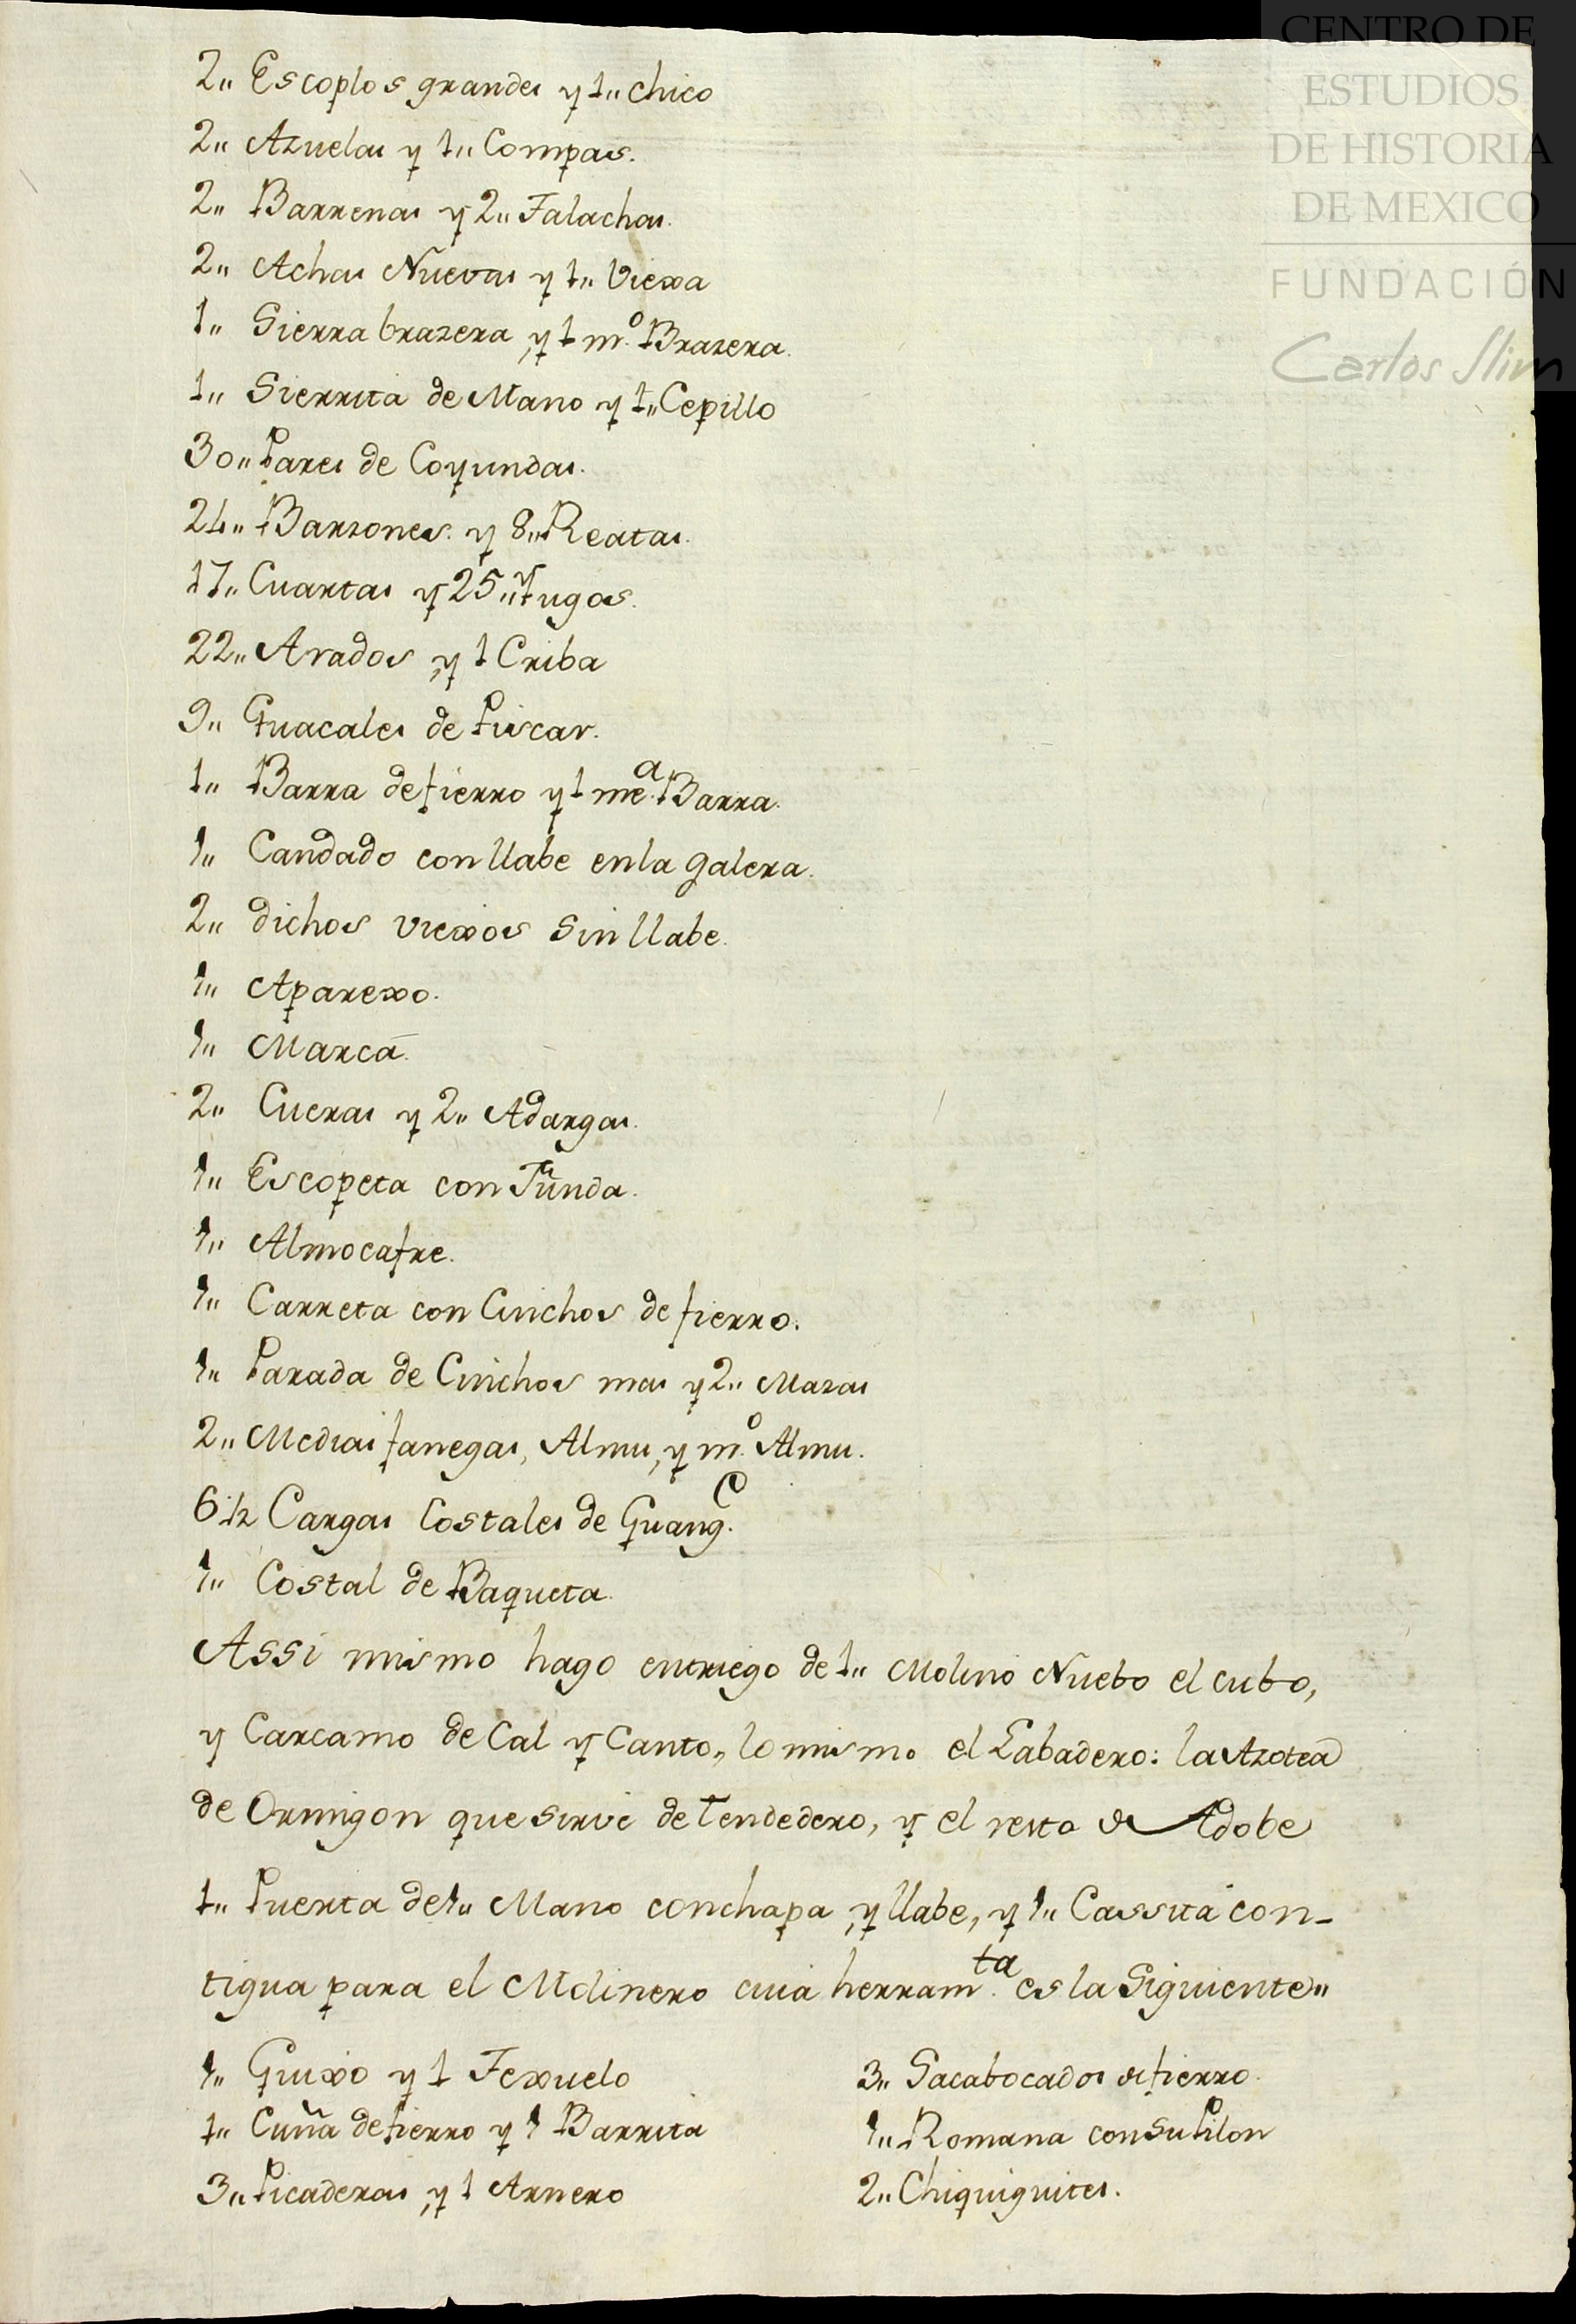 CENTRO DE
ESTUDIOS
DE HISTORIA
DE MEXICO
FUNDACIÓN
Carlos Slim
2,, Escoplos grandes y 1,, chico
2,, Azuelas y 1,, Compas.
2,, Barrenas y 2,, Talachas.
2,, Achas Nuevas y 1,, Viexa
1,, Sierra brazera, y 1 mº. Brazera.
1,, Sierrita de Mano y 1,, Cepillo
30,, Pares de Coyundas.
24,, Barzones. y 8,, Reatas.
17,, Cuartas y 25,, Yugos.
22,, Arados, y 1 Criba
9,, Guacales de Piscar.
1,, Barra de fierro y 1 meª. Barra.
1,, Candado con llabe en la galera.
2,, dichos viexos sin llabe.
1,, Aparexo.
1,, Marca.
2,, Cueras y 2,, Adargas.
1,, Escopeta con Funda.
1,, Almocafre.
1,, Carreta con Cinchos de fierro.
1,, Parada de Cinchos mas y 2,, Mazas
2,, Medias fanegas, Almu, y mº. Almu.
6 1/2 Cargas Costales de Guangᶜ.
1,, Costal de Baqueta.
Assi mismo hago entriego de 1,, Molino Nuebo el cubo,
y Carcamo de Cal y Canto,, lo mismo el Labadero: la Azotea
de Ormigon que sirve de tendedero, y el resto de Adobe
1,, Puerta de 1,, Mano con chapa, y llabe, y 1,, Cassita con-
tigua para el Molinero cuia herramᵗᵃ. es la Siguiente,,
1,, Guixo y 1 Texuelo
1,, Cuña de fierro y 1 Barrita
3,, Picaderas, y 1 Arnero
3,, Sacabocados de fierro.
1,, Romana con su Pilon
2,, Chiquiguites.